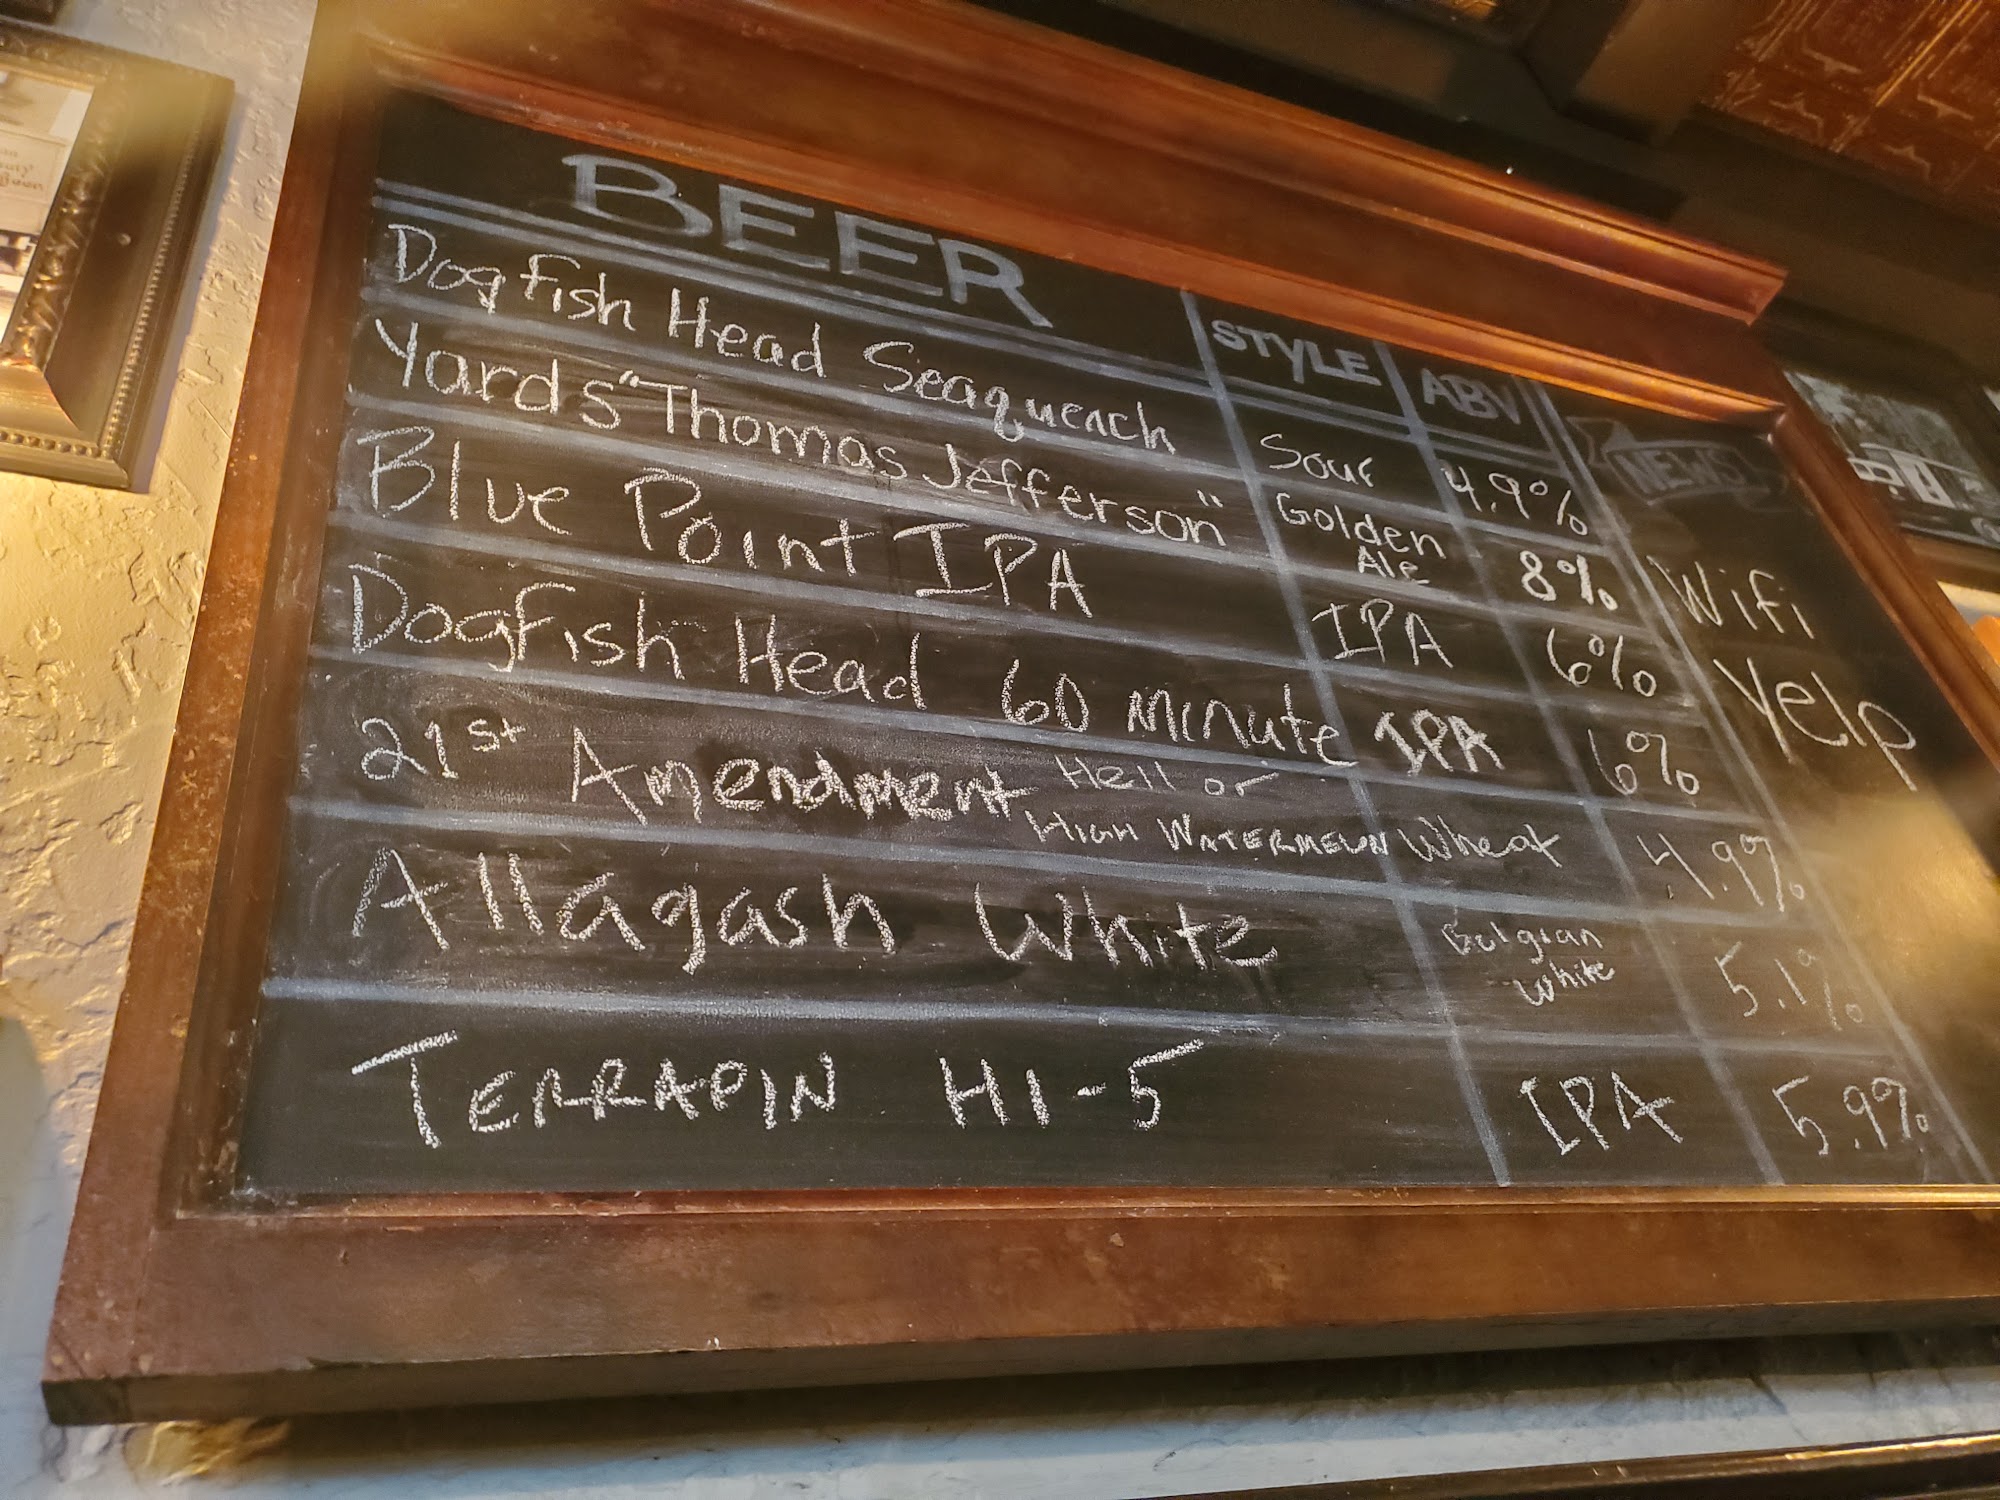 BEER STYLE ABV NEWS
Dogfish Head Seaquench Sour 4.9%
Yards "Thomas Jefferson" Golden Ale 8%
Blue Point IPA IPA 6%
Dogfish Head 60 Minute IPA 6%
21st Amendment Hell or High Watermelon Wheat 4.9%
Allagash White Belgian White 5.1%
TERRAPIN HI-5 IPA 5.9%
Wifi
Yelp